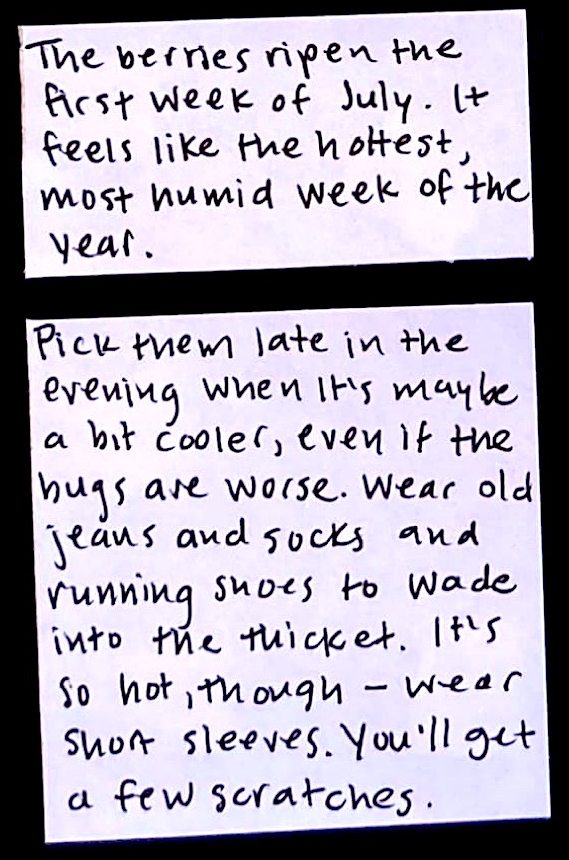 The berries ripen the
first week of July. It
feels like the hottest,
most humid week of the
year.
Pick them late in the
evening when it's maybe
a bit cooler, even if the
bugs are worse. Wear old
jeans and socks and
running shoes to wade
into the thicket. It's
so hot, though – wear
short sleeves. You'll get
a few scratches.